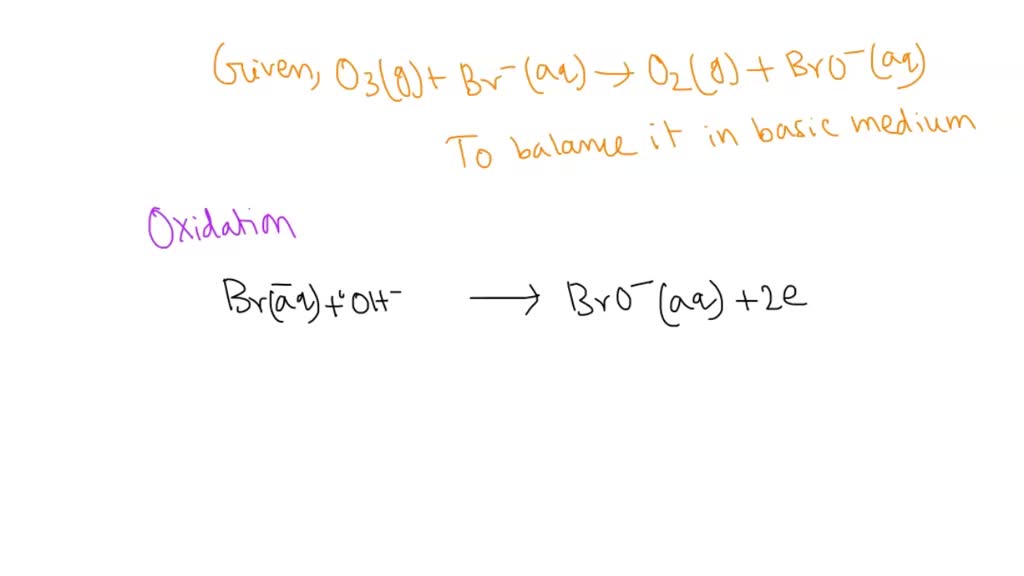 Given, O₃(g) + Br⁻(aq) → O₂(g) + BrO⁻(aq)
To balance it in basic medium
Oxidation
Br⁻(aq) + OH⁻ → BrO⁻(aq) + 2e